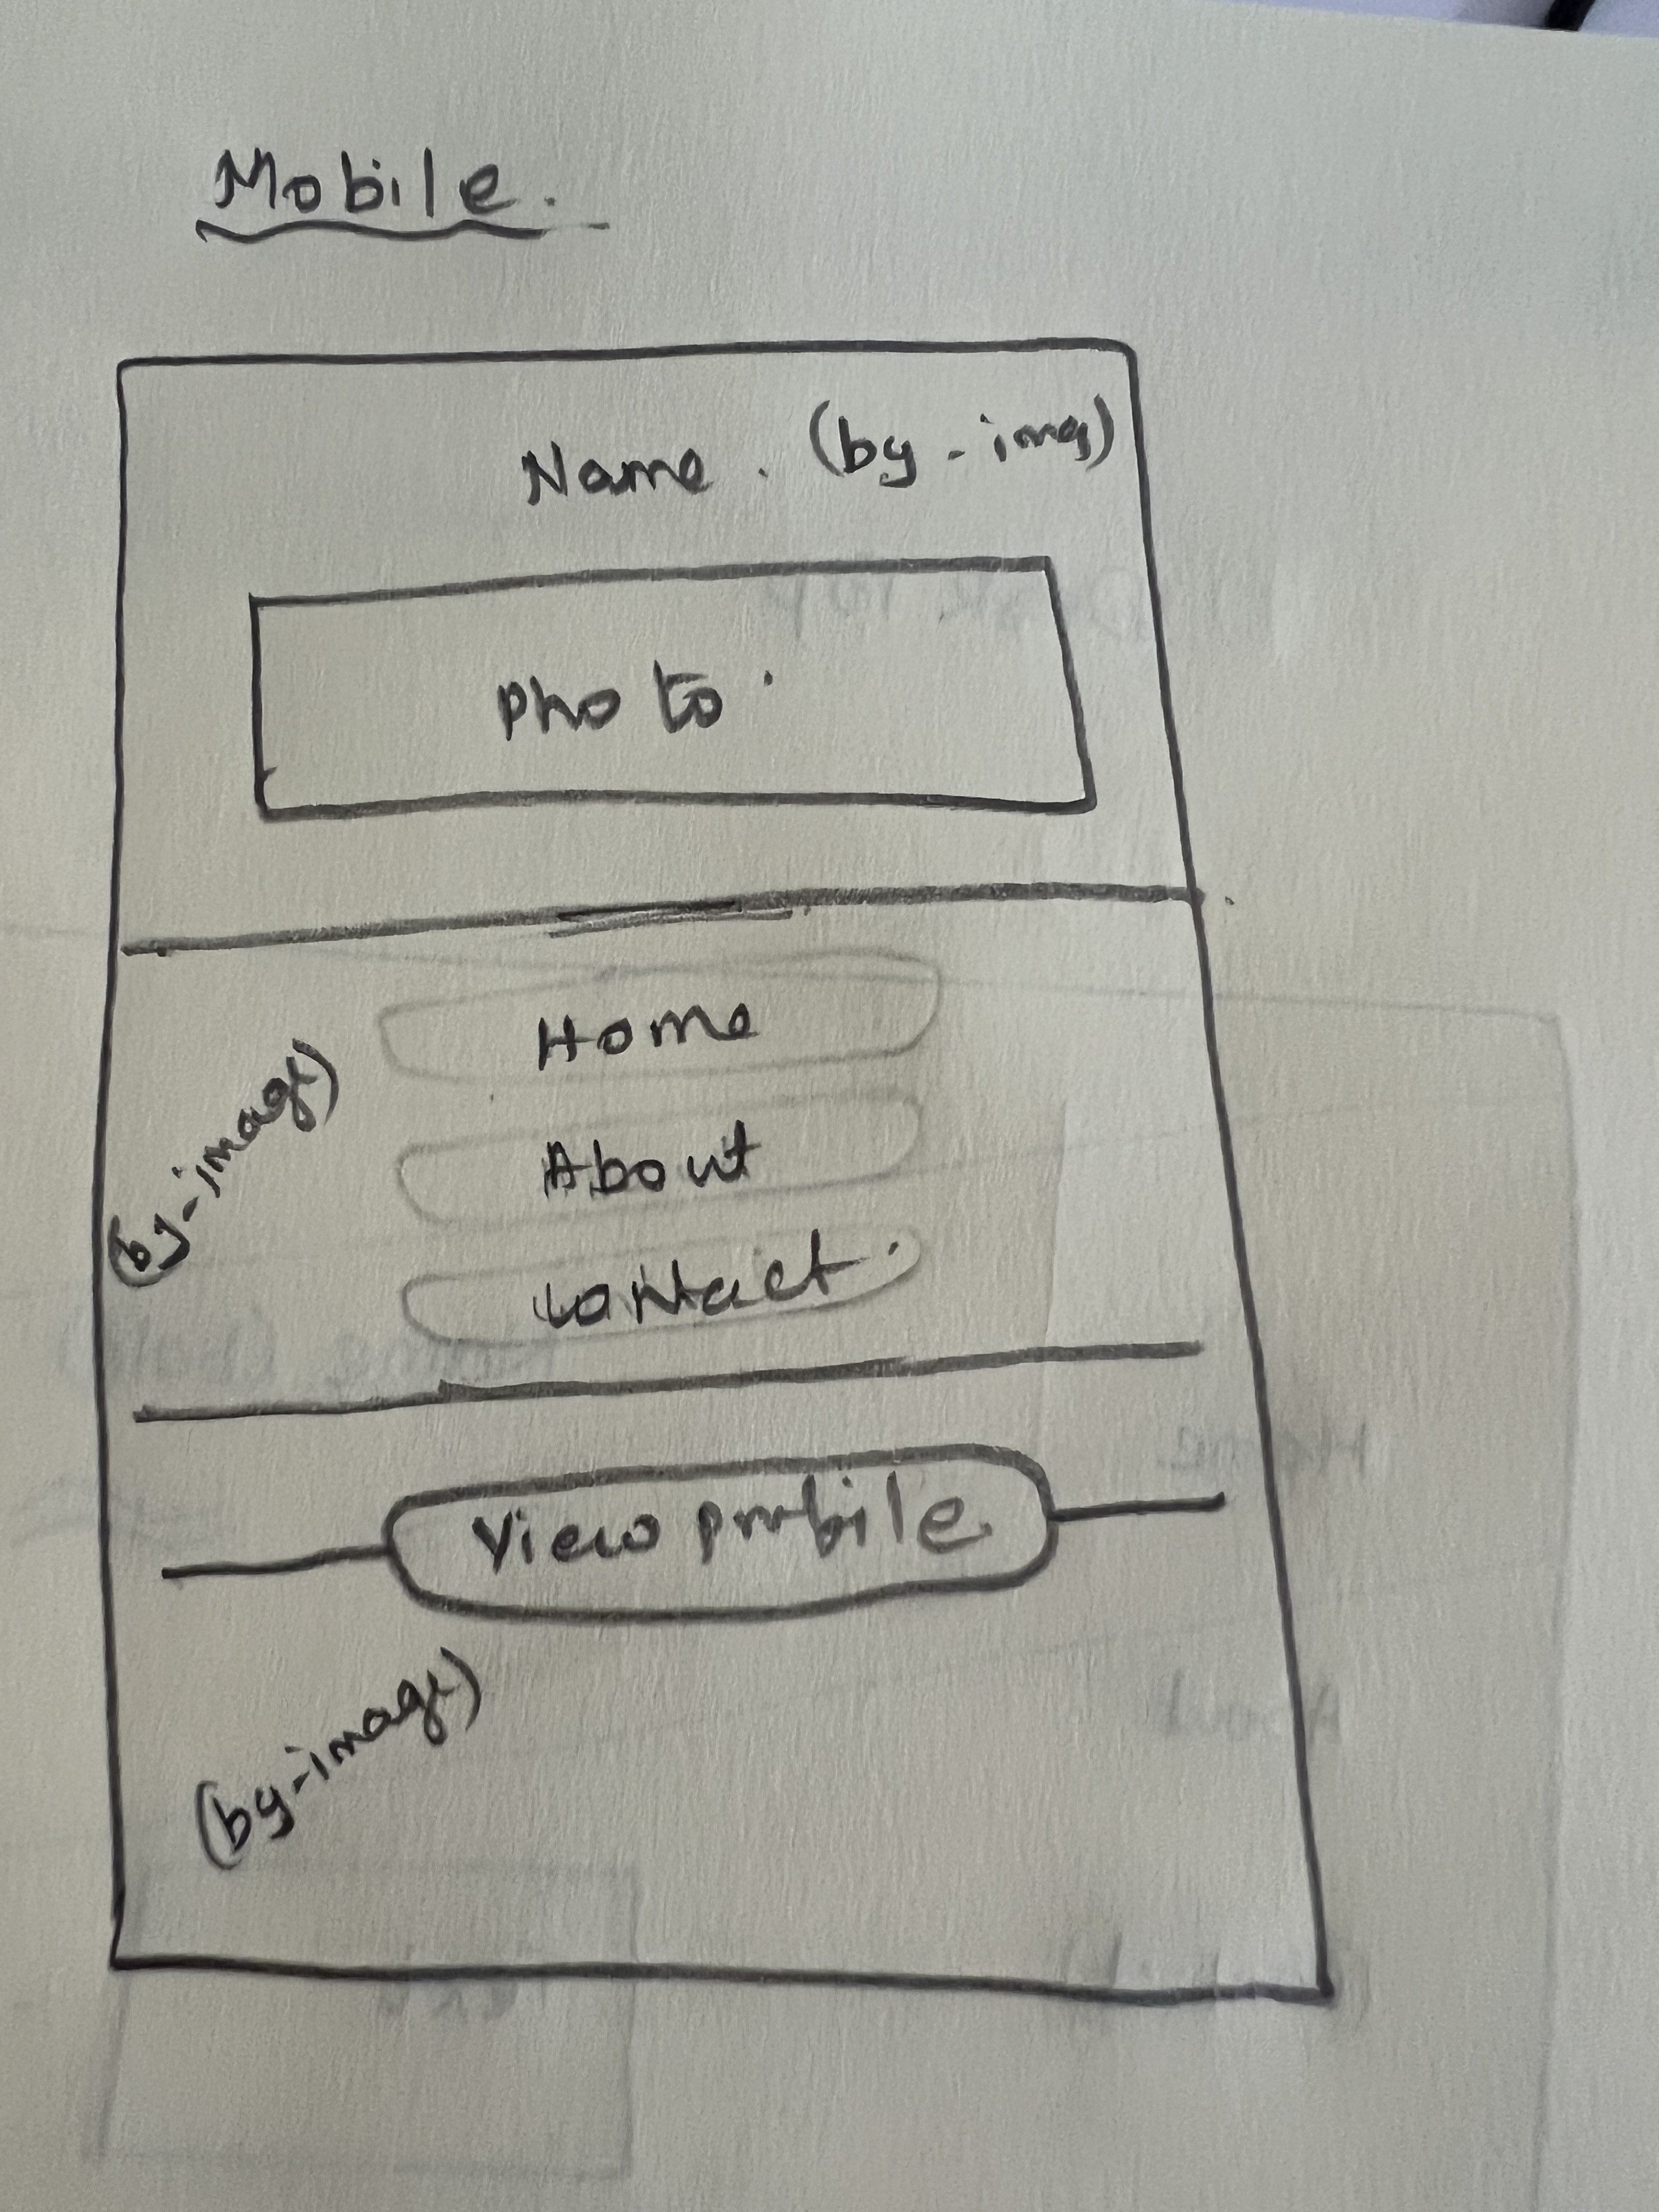 Mobile.
Name. (by-img)
Photo.
Home
(by-image)
About
Contact.
View profile.
(by-image)